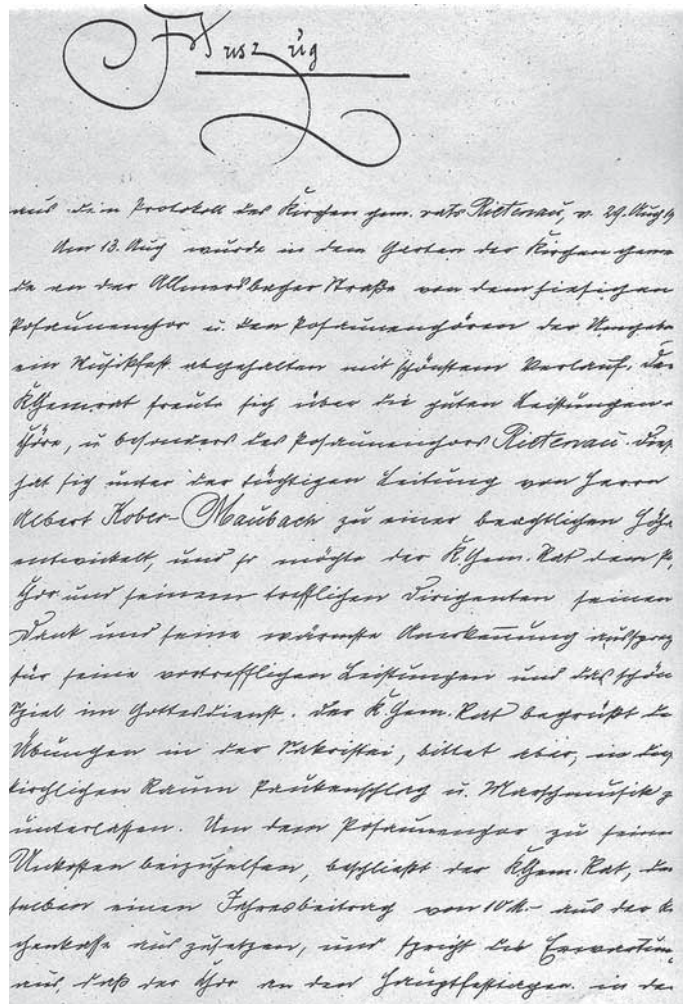 Auszug
aus dem Protokoll des Kirchengem. rats Rietenau, v. 29. Aug
Am 13. Aug wurde in dem Garten der Kirchengem
de an der Allmersbacher Straße von dem hiesigen
Posaunenchor u. den Posaunenchören der Umgebu
ein Musikfest abgehalten mit schönstem Verlauf. De
KGemrat freute sich über die guten Leistungen
Chöre, u besonders des Posaunenchors Rietenau. Dies
hat sich unter der tüchtigen Leitung von Herrn
Albert Kober-Maubach zu einer beachtlichen Höhe
entwickelt, und so möchte der K.Gem. Rat dem P.
Chor und seinem trefflichen Dirigenten seinen
Dank und seine wärmste Anerkennung ausspreg
für seine vortrefflichen Leistungen und das schön
Spiel im Gottesdienst. Der K.Gem. Rat begrüßt de
Übungen in der Sakristei, bittet aber, in des
kirchlichen Raum Paukenschlag u. Marschmusik z
unterlassen. Um dem Posaunenchor zu seine
Unkosten beizuhelfen, beschließt der KGem. Rat, de
selben einen Jahresbeitrag von 10 M.- aus der K
chenkasse auszusetzen, und spricht die Erwartun
aus, daß der Chor an den Hauptfesttagen in de